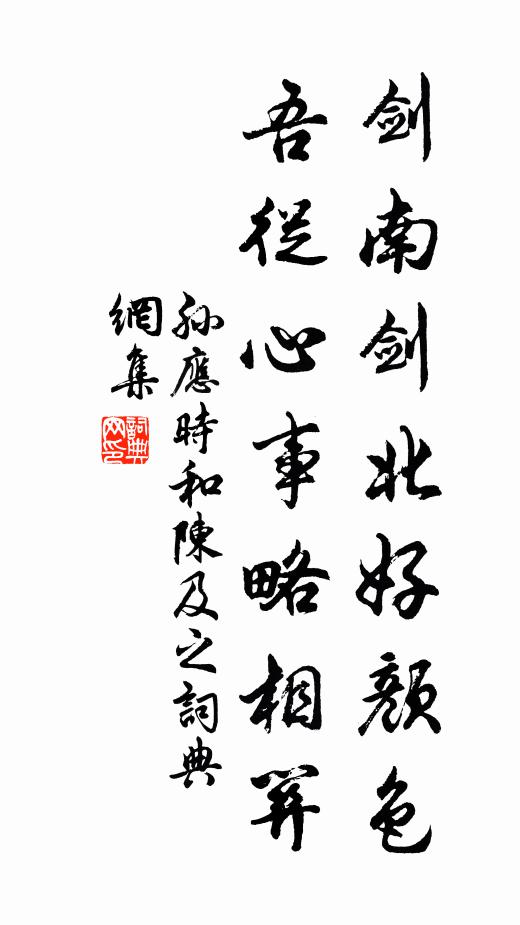 剑南剑北好顏色
吾從心事略相關
孫應時和陳及之詞典
網集
詞典
网印